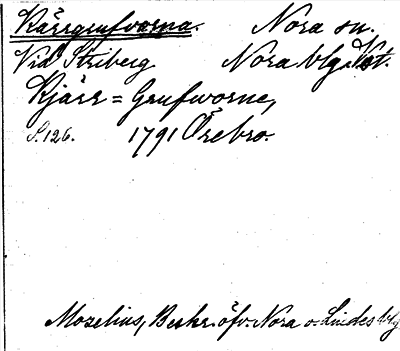 Kärrgrufvorna. Nora sn.
Vid Striberg Nora blg
Kjärr=Grufvorne,
S. 126. 1791 Örebro.
Mozelius, Beskr. öfv. Nora o. Lindes blg